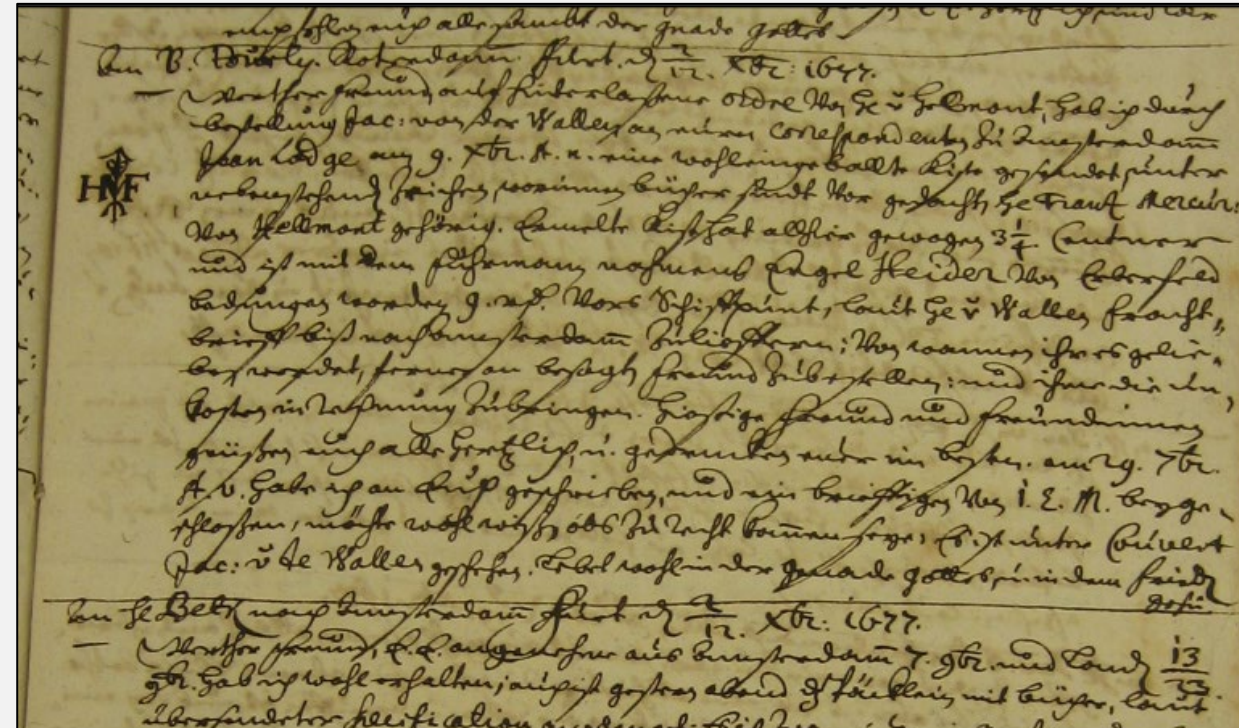 empfehlen euch allesambt der gnade Gottes
An B. Fourly. Rotterdamm. Ffurt. d 2/12. Xbr: 1677.
Werther freund auf hinderlaßene ordel von H v Hellmont, hab ich durch
bestellung Jac: von der Wallen an euren Correspondenten zu Amsterdamm
Joan Lodge am 9. Xbr. st. n. eine wohleingeballte Kiste gesendet, unter
HMF
nebenstehend Zeichen, worinnen bücher sindt vor gedacht H Frantz Mercur:
von Hellmont gehörig. Ermelte Kist hat allhier gewogen 3 1/4. Centner
und ist mit dem fuhrmann nahmens Engel Heider von Erberfeld
bedungen worden 9. vors Schiffpunt, laut H v Wallen fracht„
brieff biß nach Amsterdamm zulieffern; von wannen ihr es gelie„
ben werdet, ferner an besagt freund zubestellen; und ihme die un„
kosten in rechnung zubringen. Hiesige freund und freundinnen
grüßen euch alle hertzlich, u. gedencken euer im besten. am 29. 7br.
st. v. habe ich an Euch geschrieben, und ein brieffigen von I. E. M. beyge„
schloßen, möchte wohl wißen obs zu recht kommen seye; Es ist unter Couvert
Jac: v de Wallen geschehen. Lebet wohl in der genade Gottes, u. in dem frieden
Jesu
An H Betz nach Amsterdamm Ffurt d 2/12. Xbr: 1677.
Werther freund, E. E. angenehme aus Amsterdamm 7. 9br. und Lond 13/23
9br. hab ich wohl erhalten; auch ist gestern abend d Päcklein mit bücher, laut
übersendeter Specification